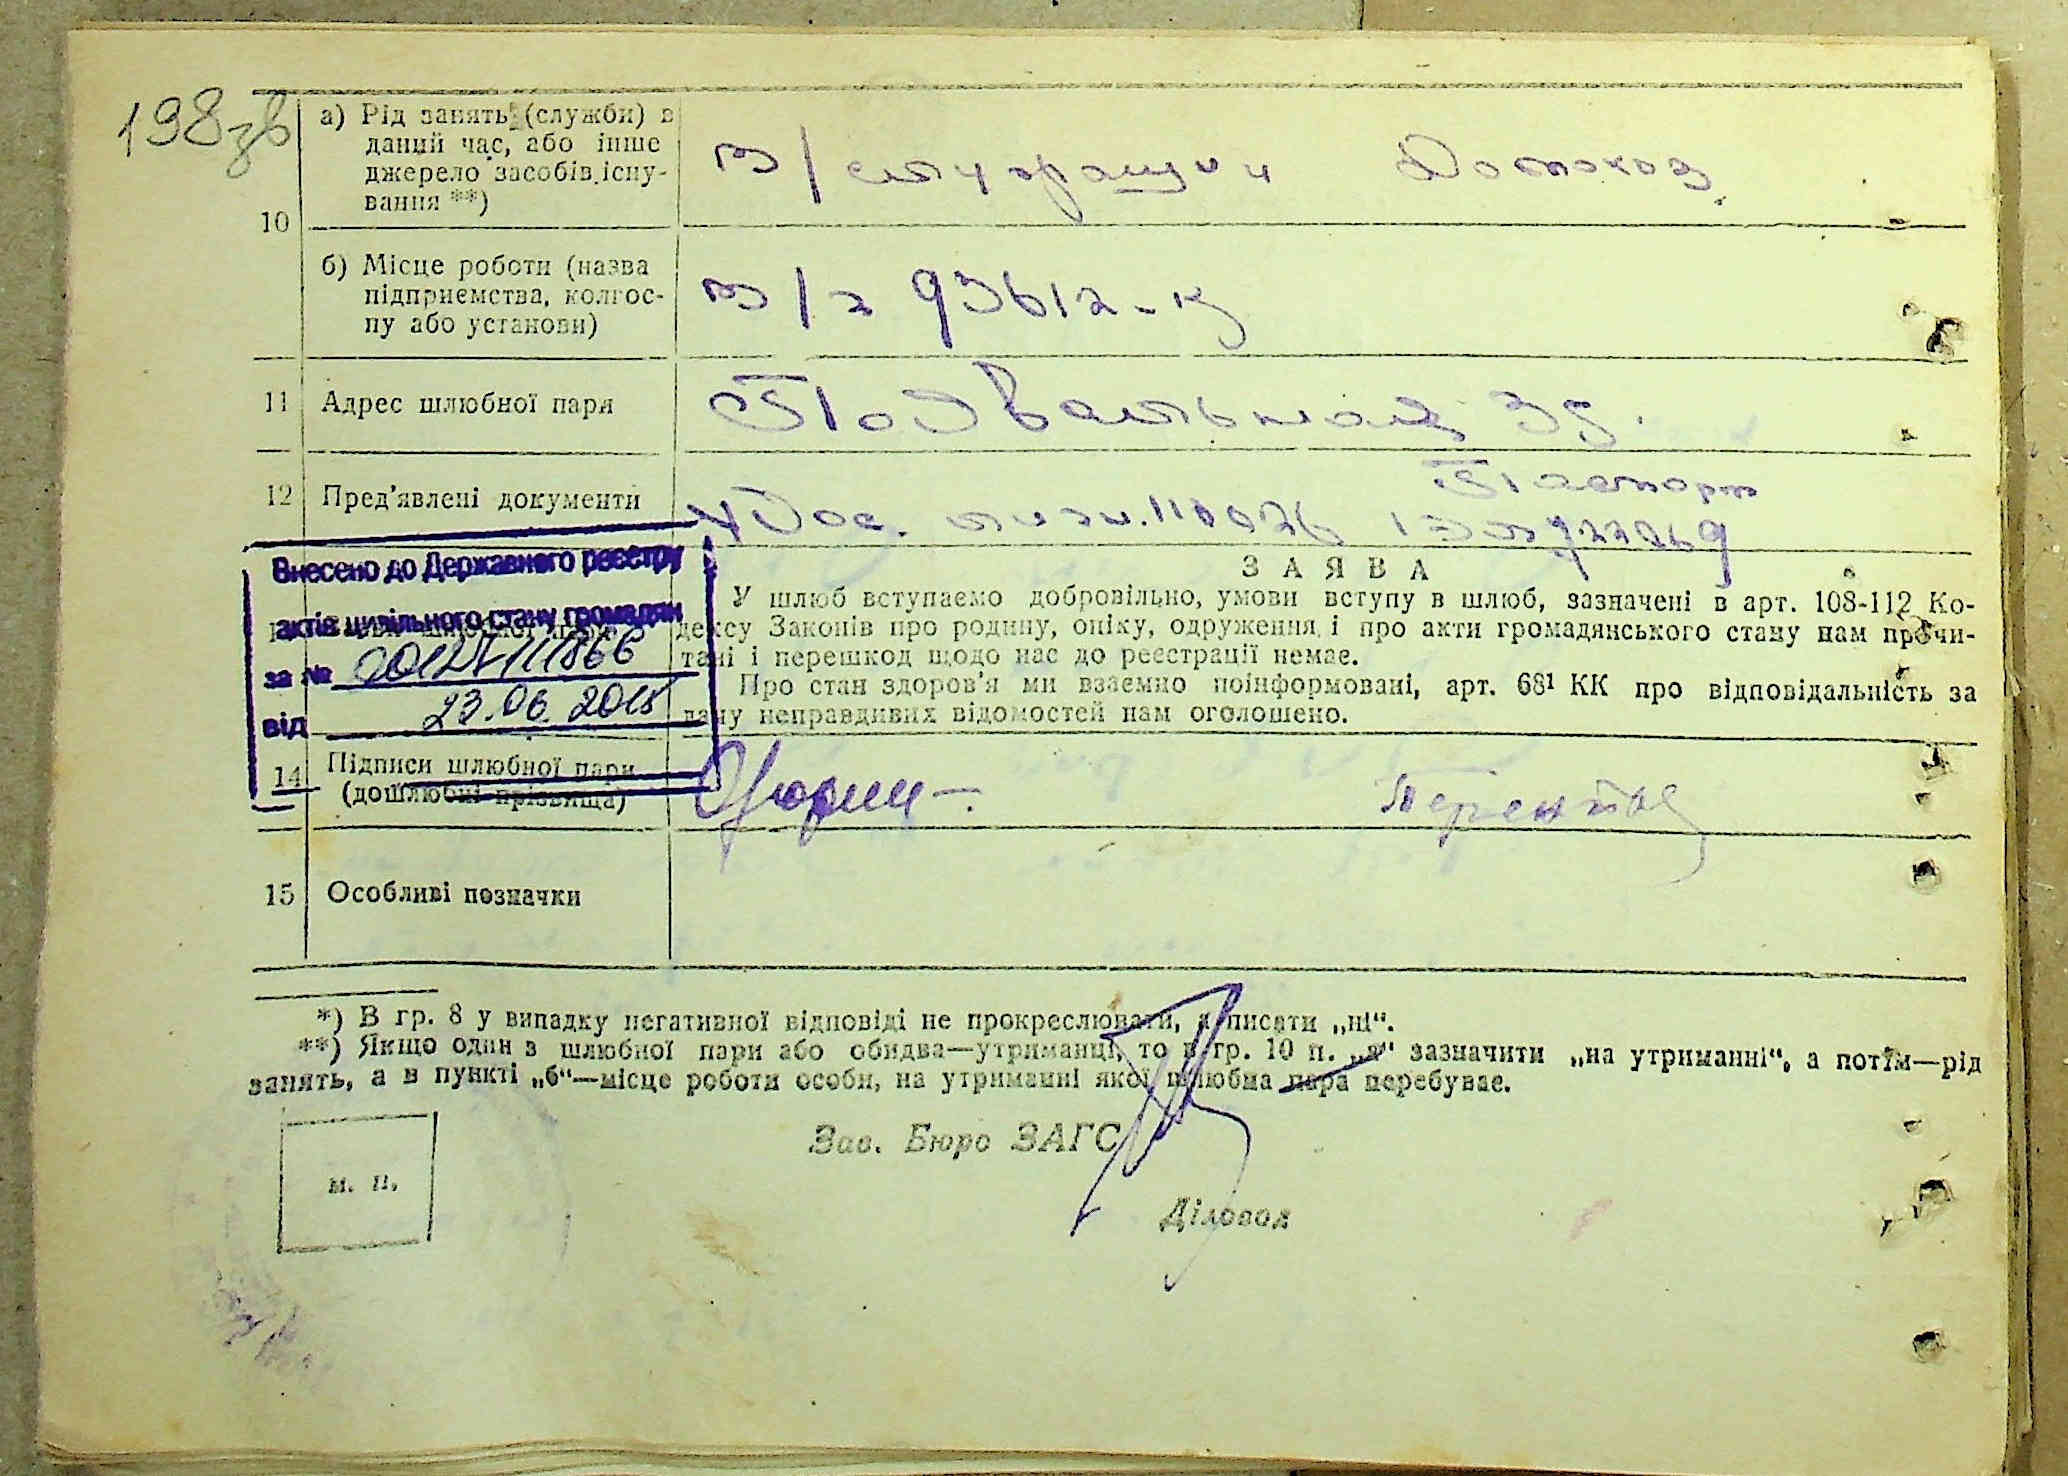 198зв
а) Рід занять (служби) в
даний час, або інше
джерело засобів існу-
вання **)
10
б) Місце роботи (назва
підприємства, колгос-
пу або установи)
в/ч 93612-
11 Адрес шлюбної пари
Подвальная 35.
12 Пред'явлені документи
Паспорт
Удос. личн.
Внесено до Державного реєстру
актів цивільного стану громадян
за № 00121111866
від 23.06.2015
ЗАЯВА
У шлюб вступаємо добровільно, умови вступу в шлюб, зазначені в арт. 108-112 Ко-
дексу Законів про родину, опіку, одруження і про акти громадянського стану нам прочи-
тані і перешкод щодо нас до реєстрації немає.
Про стан здоров'я ми взаємно поінформовані, арт. 68¹ КК про відповідальність за
дачу неправдивих відомостей нам оголошено.
14 Підписи шлюбної пари
(дошлюбні прізвища)
15 Особливі позначки
*) В гр. 8 у випадку негативної відповіді не прокреслювати, а писати „ні“.
**) Якщо один з шлюбної пари або обидва—утриманці, то в гр. 10 п. „а“ зазначити „на утриманні“, а потім—рід
занять, а в пункті „б“—місце роботи особи, на утриманні якої шлюбна пара перебуває.
Зав. Бюро ЗАГС
м. п.
Діловод